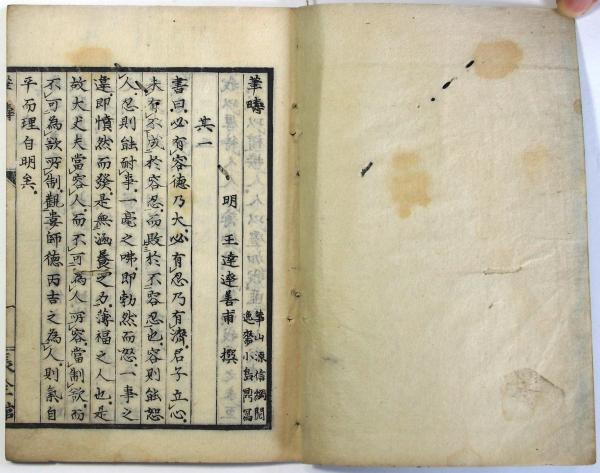 筆疇
明 王達達善甫 撰
華山源信綱閲
逸齋小島鼎冩
其一
書曰必有容德乃大必有忍乃有濟君子立心
未有不成於容忍而敗於不容忍也容則能恕
人忍則能耐事一毫之咈即勃然而怒一事之
違即憤然而發是無涵養之力薄福之人也是
故大丈夫當容人而不可為人所容當制欲而
不可為欲所制觀婁師德丙吉之為人則氣自
平而理自明矣